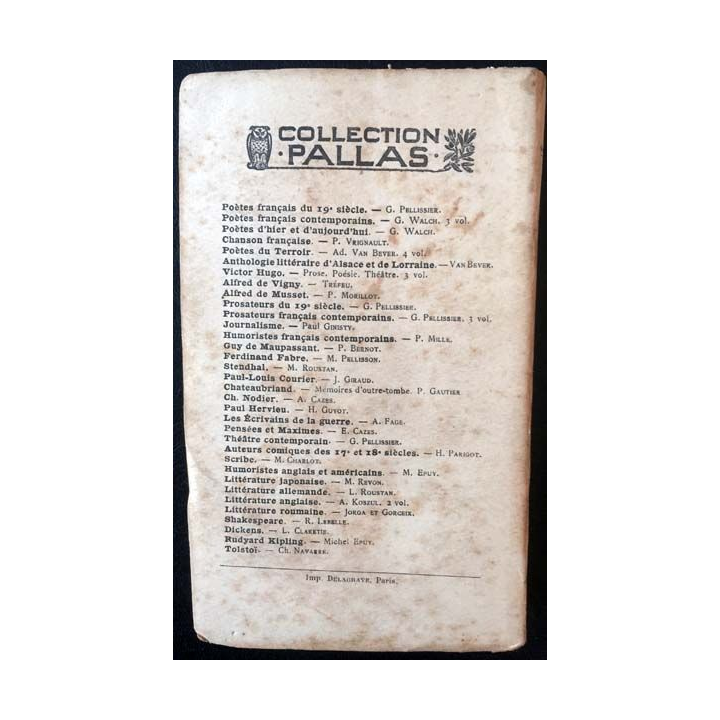 COLLECTION
·PALLAS·
Poètes français du 19e siècle. — G. Pellissier.
Poètes français contemporains. — G. Walch. 3 vol.
Poètes d'hier et d'aujourd'hui. — G. Walch.
Chanson française. — P. Vrignault.
Poètes du Terroir. — Ad. Van Bever. 4 vol.
Anthologie littéraire d'Alsace et de Lorraine. — Van Bever.
Victor Hugo. — Prose. Poésie. Théâtre. 3 vol.
Alfred de Vigny. — Tréfeu.
Alfred de Musset. — P. Morillot.
Prosateurs du 19e siècle. — G. Pellissier.
Prosateurs français contemporains. — G. Pellissier. 3 vol.
Journalisme. — Paul Ginisty.
Humoristes français contemporains. — P. Mille.
Guy de Maupassant. — P. Bernot.
Ferdinand Fabre. — M. Pellisson.
Stendhal. — M. Roustan.
Paul-Louis Courier. — J. Giraud.
Chateaubriand. — Mémoires d'outre-tombe. P. Gautier
Ch. Nodier. — A. Cazes.
Paul Hervieu. — H. Guyot.
Les Écrivains de la guerre. — A. Fage.
Pensées et Maximes. — E. Cazes.
Théâtre contemporain. — G. Pellissier.
Auteurs comiques des 17e et 18e siècles. — H. Parigot.
Scribe. — M. Charlot.
Humoristes anglais et américains. — M. Epuy.
Littérature japonaise. — M. Revon.
Littérature allemande. — L. Roustan.
Littérature anglaise. — A. Koszul. 2 vol.
Littérature roumaine. — Jorga et Gorceix.
Shakespeare. — R. Lebelle.
Dickens. — L. Claretie.
Rudyard Kipling. — Michel Epuy.
Tolstoï. — Ch. Navarre.
Imp. Delagrave, Paris.